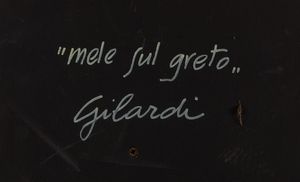 "mele sul greto„
Gilardi